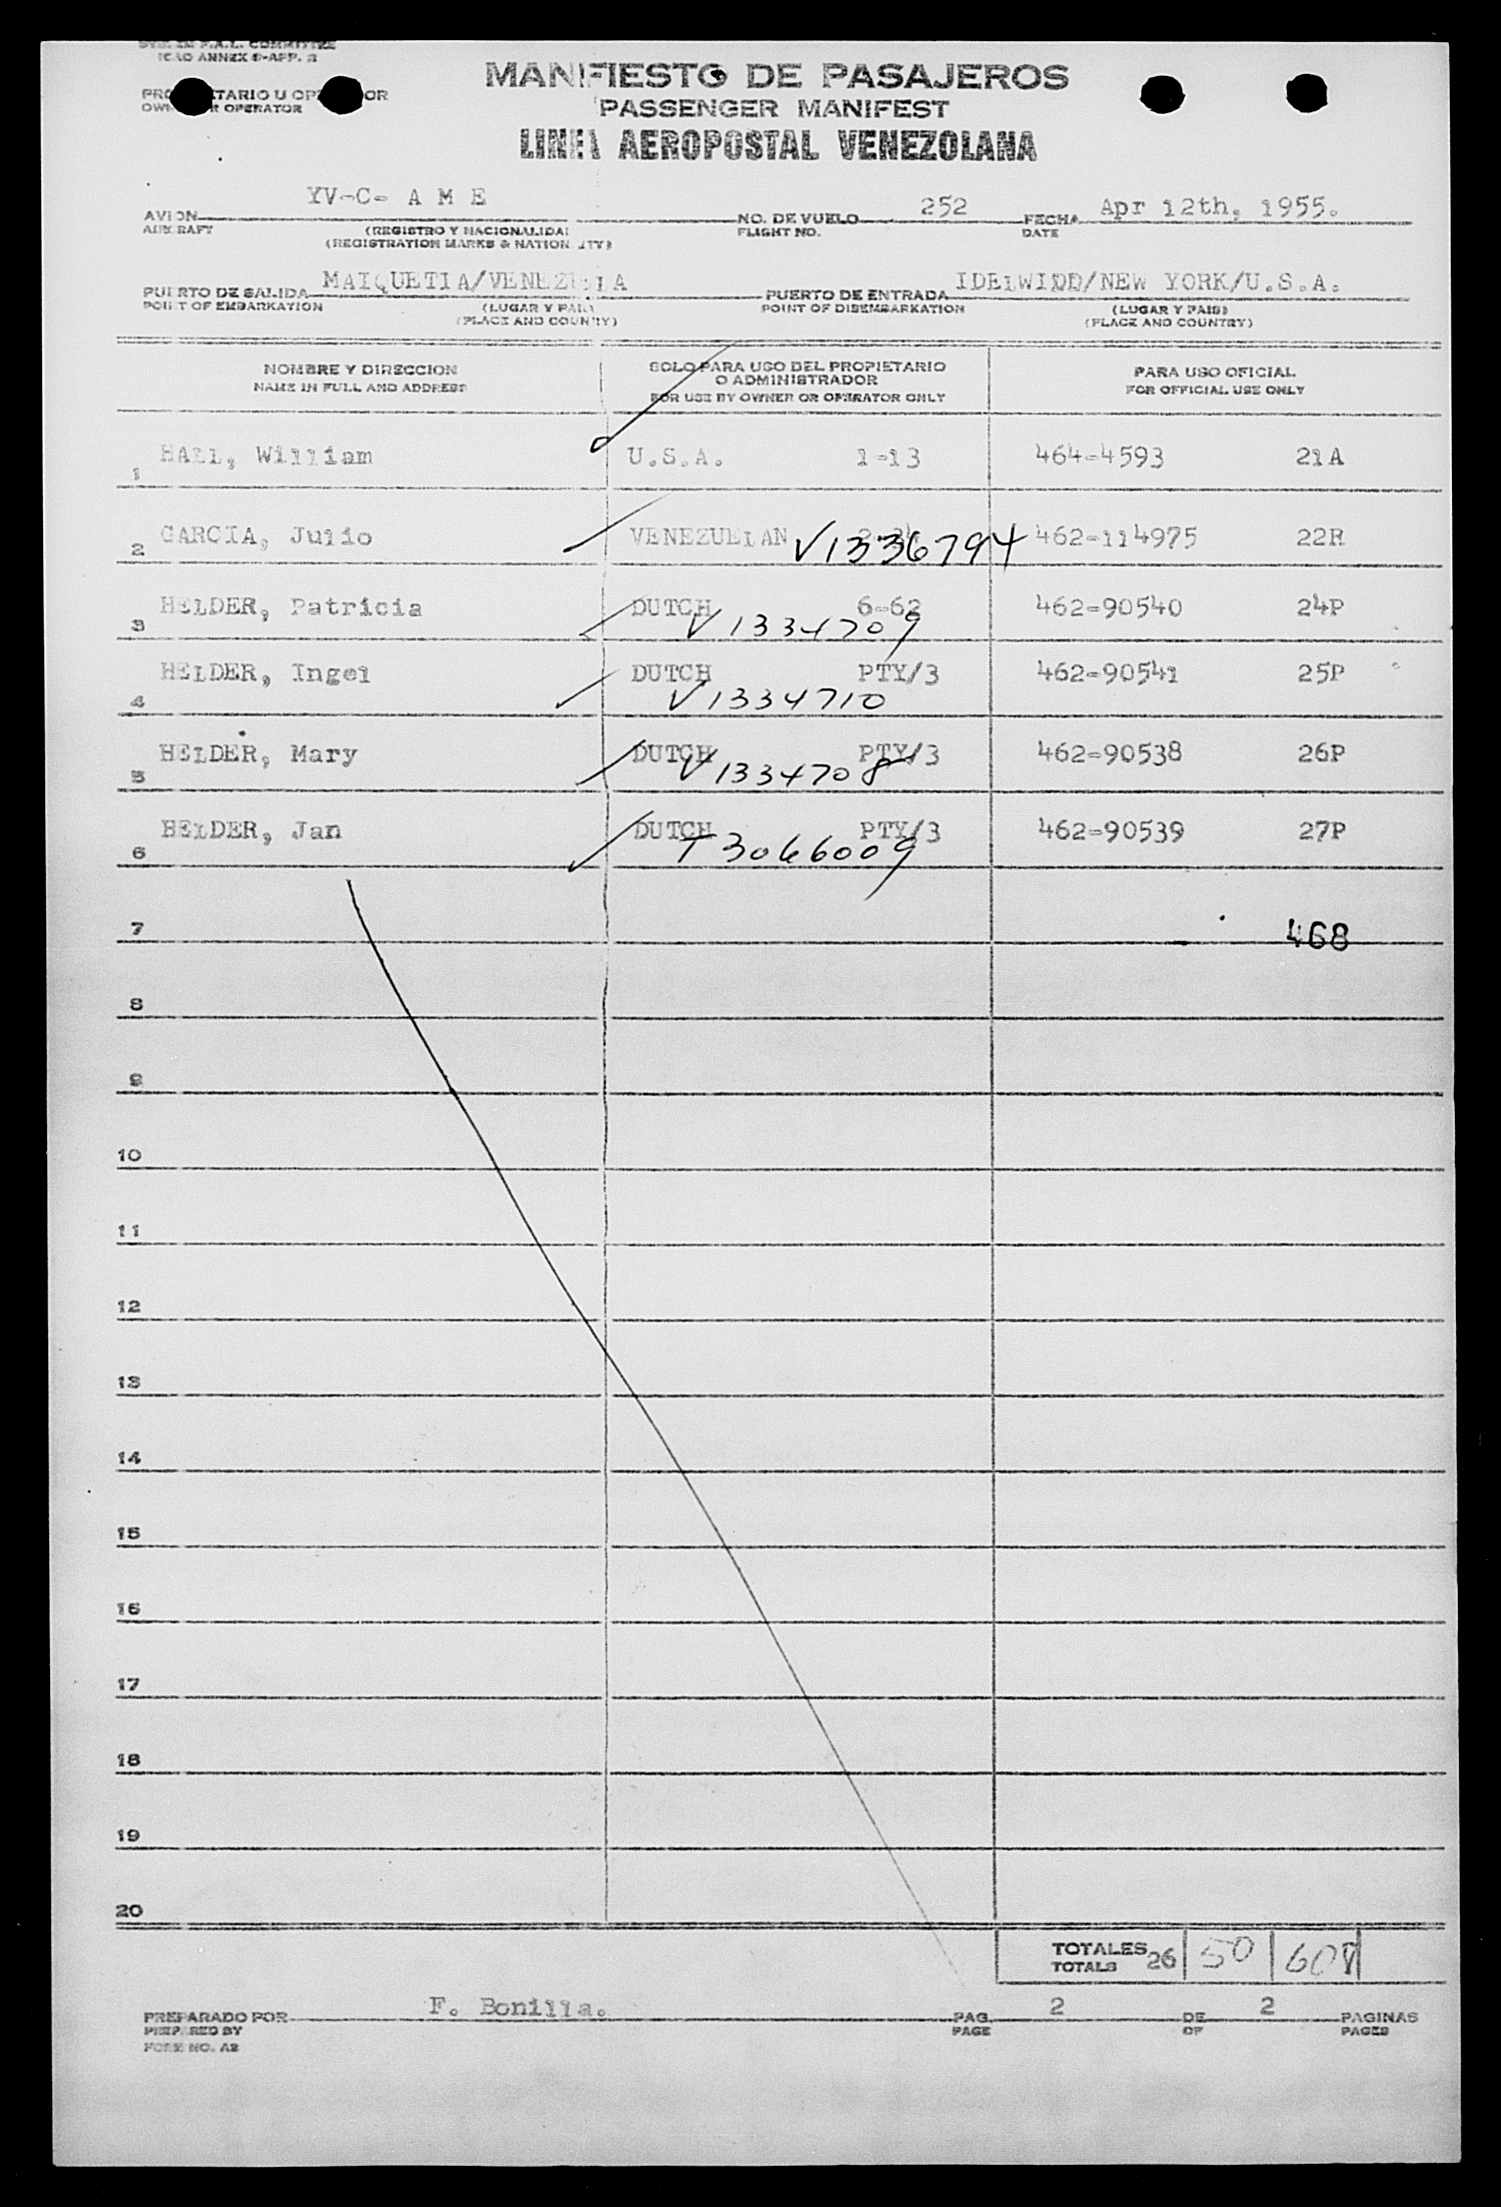 I.C.A.O ANNEX 9-APP. 3
MANIFIESTO DE PASAJEROS
OR OPERATOR
PASSENGER MANIFEST
LINEA AEROPOSTAL VENEZOLANA
AVION YV-C- A M E NO. DE VUELO 252 FECHA Apr 12th, 1955.
AIRCRAFT (REGISTRO Y NACIONALIDAD) FLIGHT NO. DATE
(REGISTRATION MARKS & NATIONALITY)
PUERTO DE SALIDA MAIQUETIA/VENEZUELA PUERTO DE ENTRADA IDELWIDD/NEW YORK/U.S.A.
POINT OF EMBARKATION (LUGAR Y PAIS) POINT OF DISEMBARKATION (LUGAR Y PAIS)
(PLACE AND COUNTRY) (PLACE AND COUNTRY)
NOMBRE Y DIRECCION SOLO PARA USO DEL PROPIETARIO PARA USO OFICIAL
NAME IN FULL AND ADDRESS O ADMINISTRADOR FOR OFFICIAL USE ONLY
FOR USE BY OWNER OR OPERATOR ONLY
1 HALL, William U.S.A. 1-13 464-4593 21A
2 GARCIA, Julio VENEZUELAN V1336794 462-114975 22R
3 HELDER, Patricia DUTCH 6-62 462-90540 24P
V1334709
4 HELDER, Ingel DUTCH PTY/3 462-90541 25P
V1334710
5 HELDER, Mary DUTCH PTY/3 462-90538 26P
V1334708
6 HELDER, Jan DUTCH PTY/3 462-90539 27P
T3066009
7 468
8
9
10
11
12
13
14
15
16
17
18
19
20
TOTALES 26 50
TOTALS
PREPARADO POR F. Bonilla. PAG. 2 DE 2 PAGINAS
PREPARED BY PAGE OF PAGES
FORM NO. A2